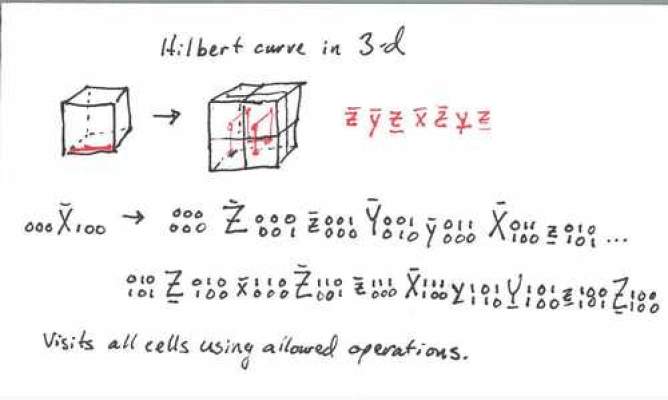 Hilbert curve in 3-d
z̄ ȳ z̲ x̄ z̄ y̲ z̲
000 X̄ 100 → 000 000 Z̄ 000 001 z̄ 001 000 Ȳ 001 010 ȳ 011 000 X̄ 011 100 z̲ 010 101 ...
010 101 Z̲ 010 100 x̄ 110 000 Z̄ 110 001 z̄ 111 000 X̄ 111 100 y̲ 101 110 Y̲ 101 100 z̲ 100 101 Z̲ 100 100
Visits all cells using allowed operations.